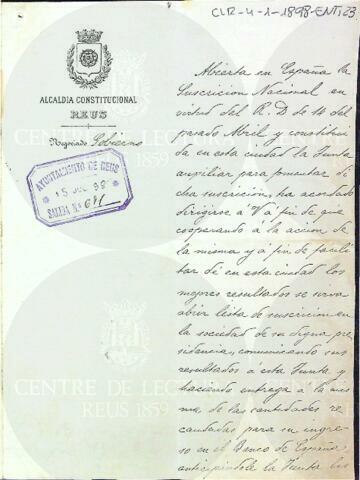 CLR-4-1-1898-ENT,23
ALCALDIA CONSTITUCIONAL
REUS
Negociado Gobierno
AYUNTAMIENTO DE REUS
15 JUL 98
SALIDA N.º 641
Abierta en España la
Suscricion Nacional en
virtud del R. D de 14 del
pasado Abril y constitui
da en esta ciudad la Junta
auxiliar para fomentar di
cha suscricion, ha acordado
dirigirse á V á fin de que
cooperando á la accion de
la misma y á fin de facili
tar dé en esta ciudad los
mejores resultados se sirva
abrir lista de suscricion en
la sociedad de su digna pre
sidencia, comunicando sus
resultados á esta Junta y
haciendo entrega á la mis
ma de las cantidades re
caudadas para su ingre
so en el Banco de España
anticipándole la Junta las
CENTRE DE LECTURA
REUS 1859